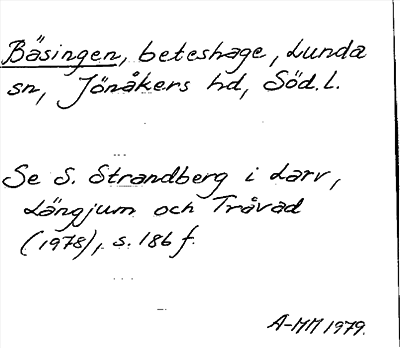 Bäsingen, beteshage, Lunda
sn, Jönåkers hd, Söd.l.
Se S. Strandberg i Larv,
Längjum och Tråvad
(1978), s. 186 f.
A-MM 1979.